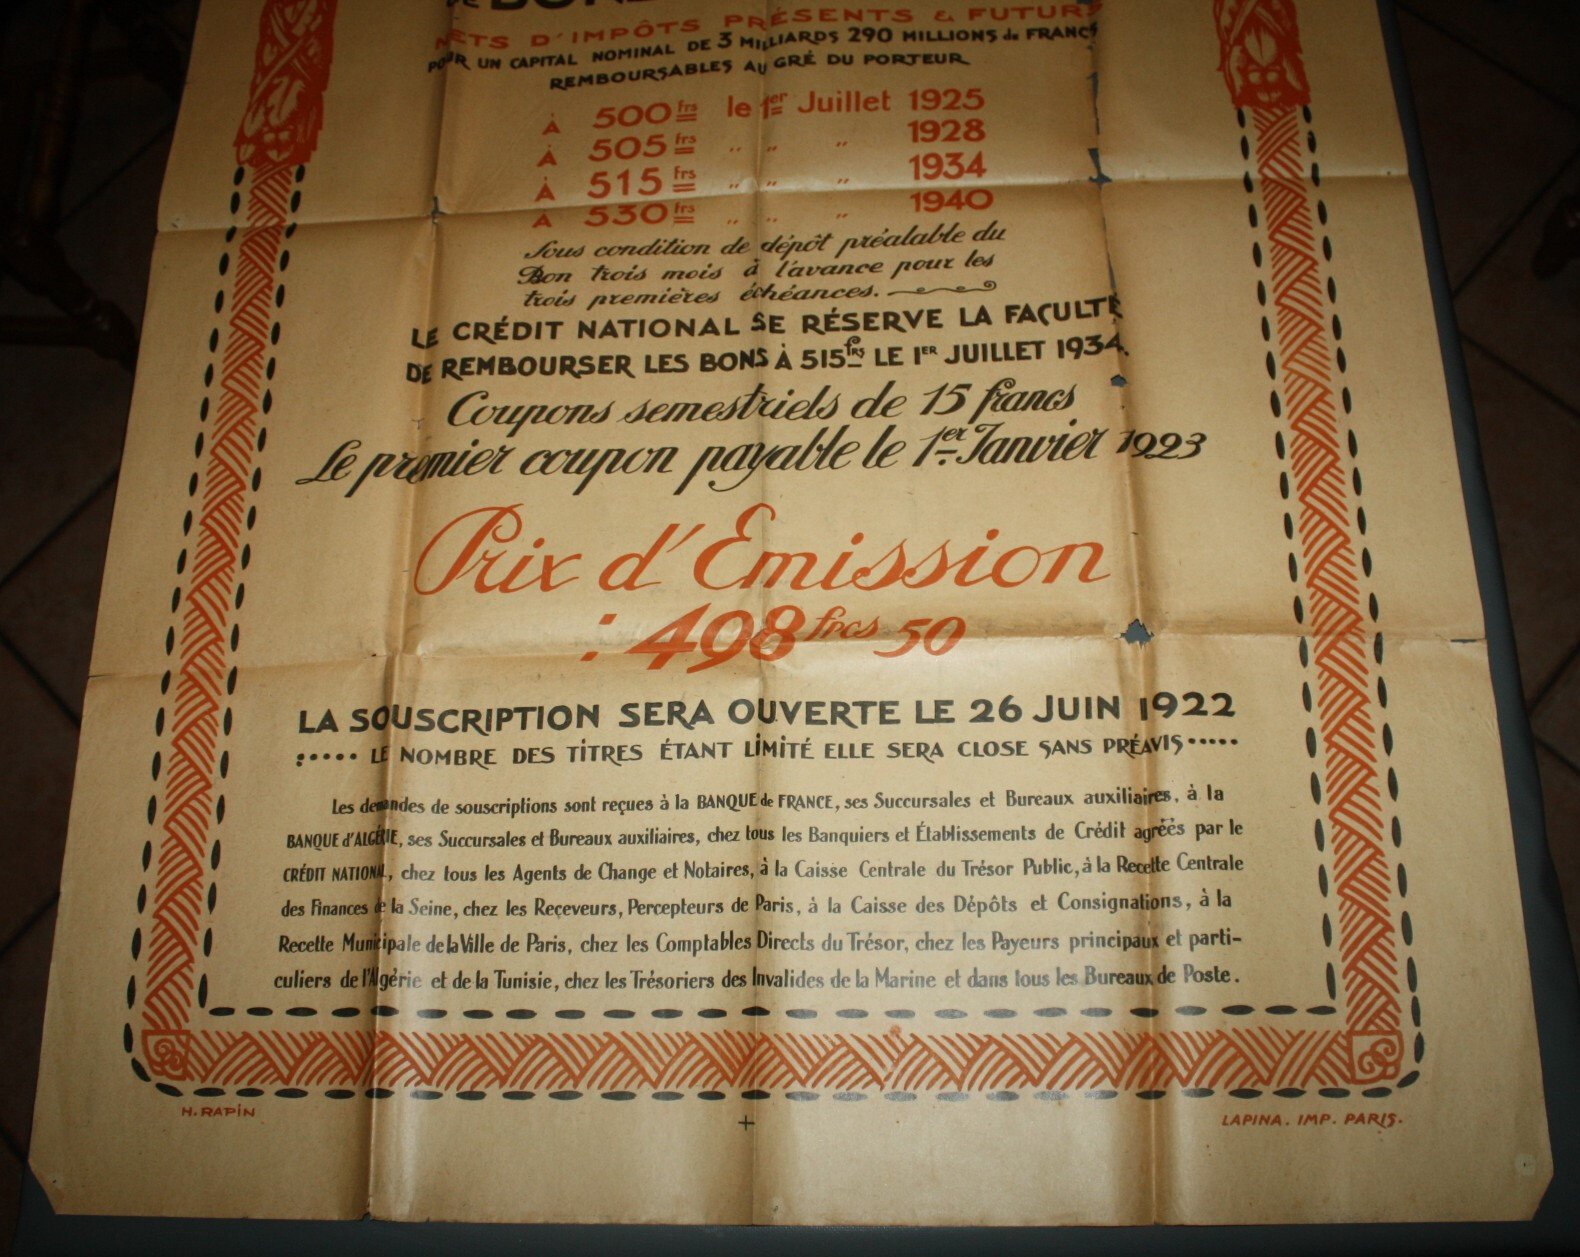 NETS D'IMPÔTS PRÉSENTS & FUTURS
POUR UN CAPITAL NOMINAL DE 3 MILLIARDS 290 MILLIONS de FRANCS
REMBOURSABLES AU GRÉ DU PORTEUR
À 500 frs le 1er Juillet 1925
À 505 frs " " " 1928
À 515 frs " " " 1934
À 530 frs " " " 1940
Sous condition de dépôt préalable du
Bon trois mois à l'avance pour les
trois premières échéances.
LE CRÉDIT NATIONAL SE RÉSERVE LA FACULTÉ
DE REMBOURSER LES BONS À 515 frs LE 1ER JUILLET 1934.
Coupons semestriels de 15 francs
Le premier coupon payable le 1er Janvier 1923
Prix d'Emission
: 498 frcs 50
LA SOUSCRIPTION SERA OUVERTE LE 26 JUIN 1922
LE NOMBRE DES TITRES ÉTANT LIMITÉ ELLE SERA CLOSE SANS PRÉAVIS
Les demandes de souscriptions sont reçues à la BANQUE de FRANCE, ses Succursales et Bureaux auxiliaires, à la
BANQUE d'ALGÉRIE, ses Succursales et Bureaux auxiliaires, chez tous les Banquiers et Établissements de Crédit agréés par le
CRÉDIT NATIONAL, chez tous les Agents de Change et Notaires, à la Caisse Centrale du Trésor Public, à la Recette Centrale
des Finances de la Seine, chez les Reçeveurs, Percepteurs de Paris, à la Caisse des Dépôts et Consignations, à la
Recette Municipale de la Ville de Paris, chez les Comptables Directs du Trésor, chez les Payeurs principaux et parti-
culiers de l'Algérie et de la Tunisie, chez les Trésoriers des Invalides de la Marine et dans tous les Bureaux de Poste.
H. RAPIN
LAPINA. IMP. PARIS.